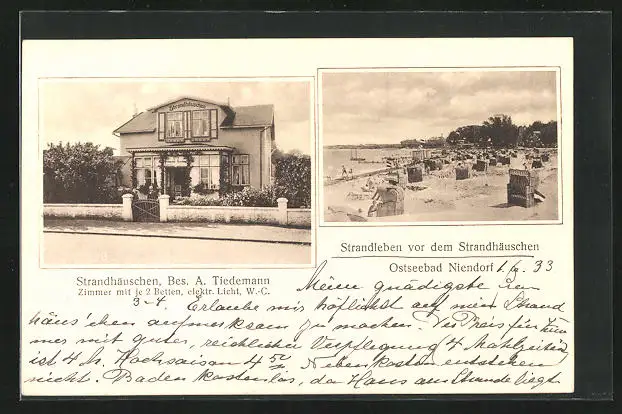 Strandhäuschen
Strandleben vor dem Strandhäuschen
Strandhäuschen, Bes. A. Tiedemann
Zimmer mit je 2 Betten, elektr. Licht, W.-C.
Ostseebad Niendorf 1./6. 33
Meine gnädigste
3-4. Erlaube mir höflichst auf mein Strand
häus'chen aufmerksam zu machen. Der Preis für Zim
mer mit guter, reichlicher Verpflegung (4 Mahlzeiten)
ist 4 M. Hochsaison 4 50 Nebenkosten entstehen
nicht. Baden kostenlos, da Haus am Strande liegt.